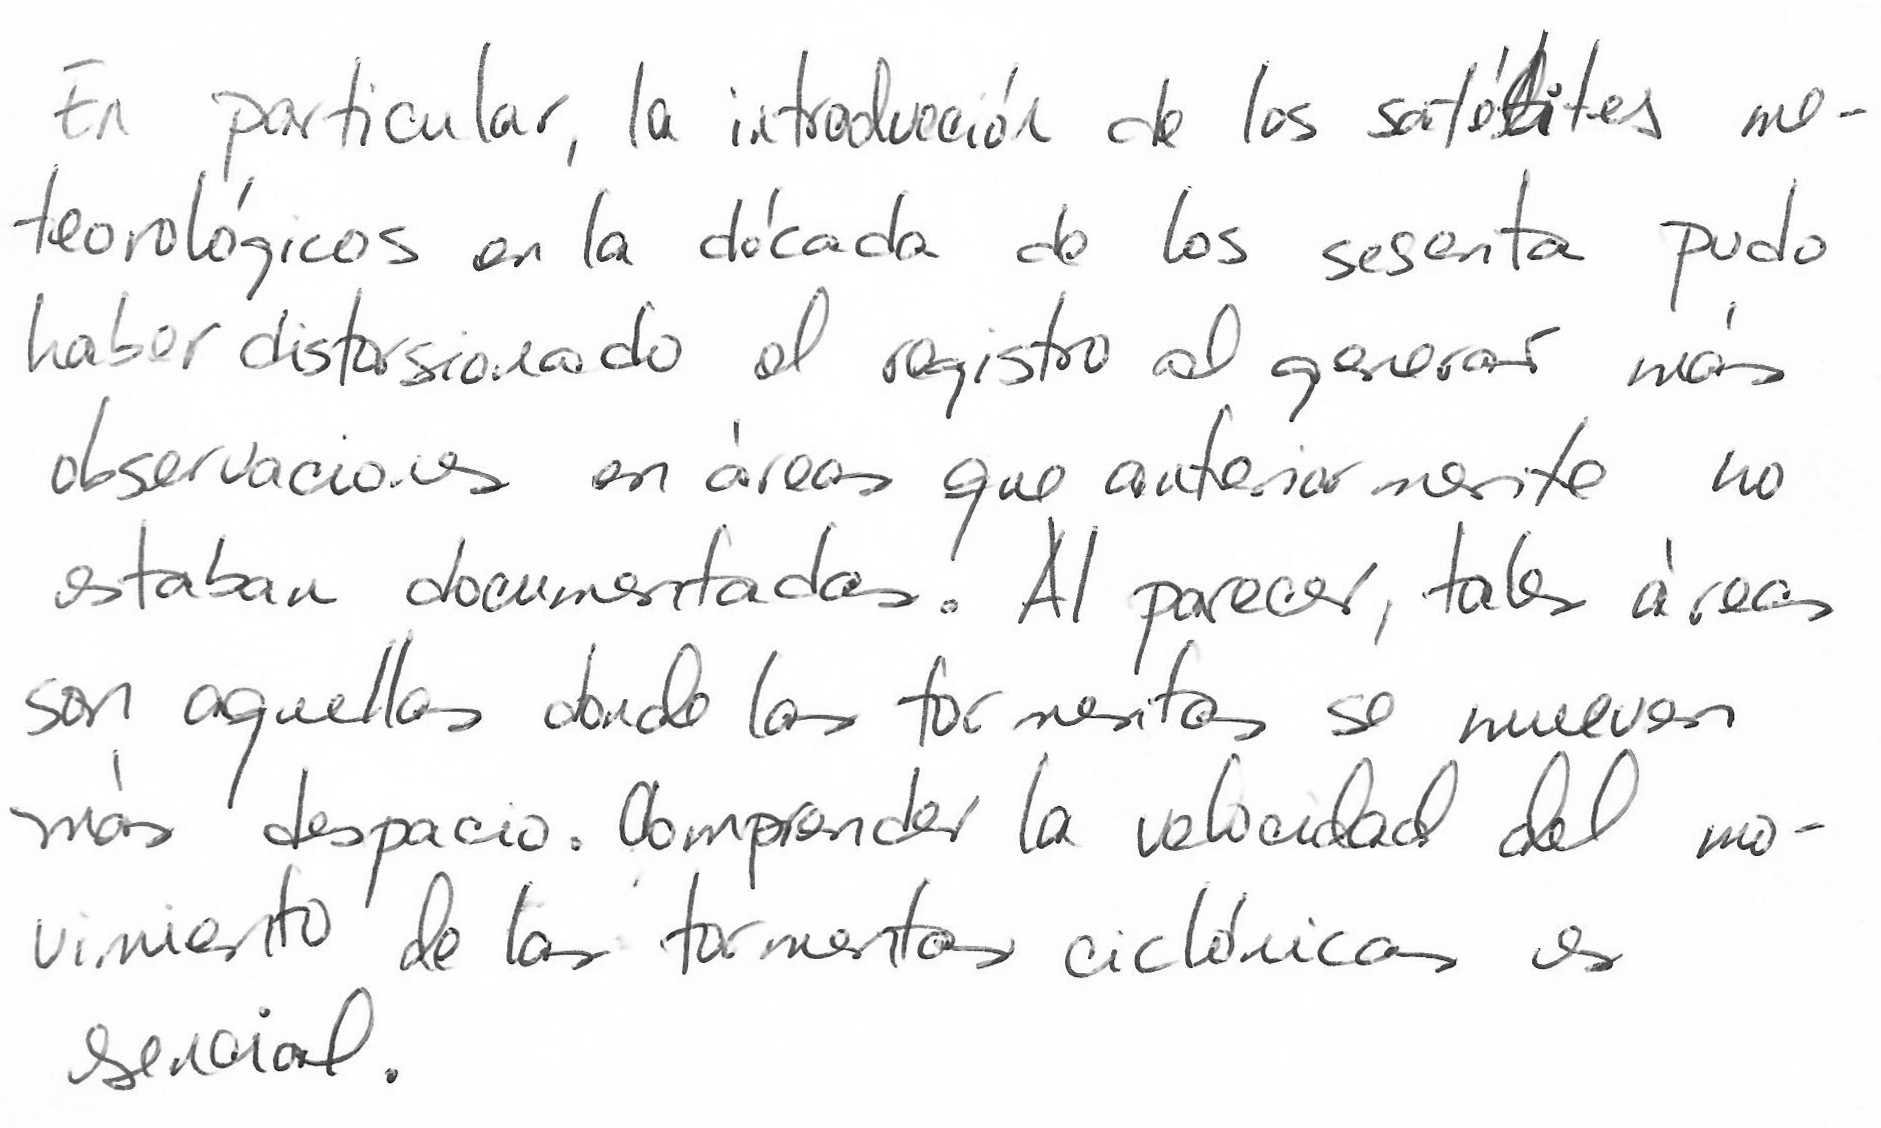 En particular, la introducción de los satélites me-
teorológicos en la década de los sesenta pudo
haber distorsionado el registro al generar más
observaciones en áreas que anteriormente no
estaban documentadas. Al parecer, tales áreas
son aquellas donde las tormentas se mueven
más despacio. Comprender la velocidad del mo-
vimiento de las tormentas ciclónicas es
esencial.